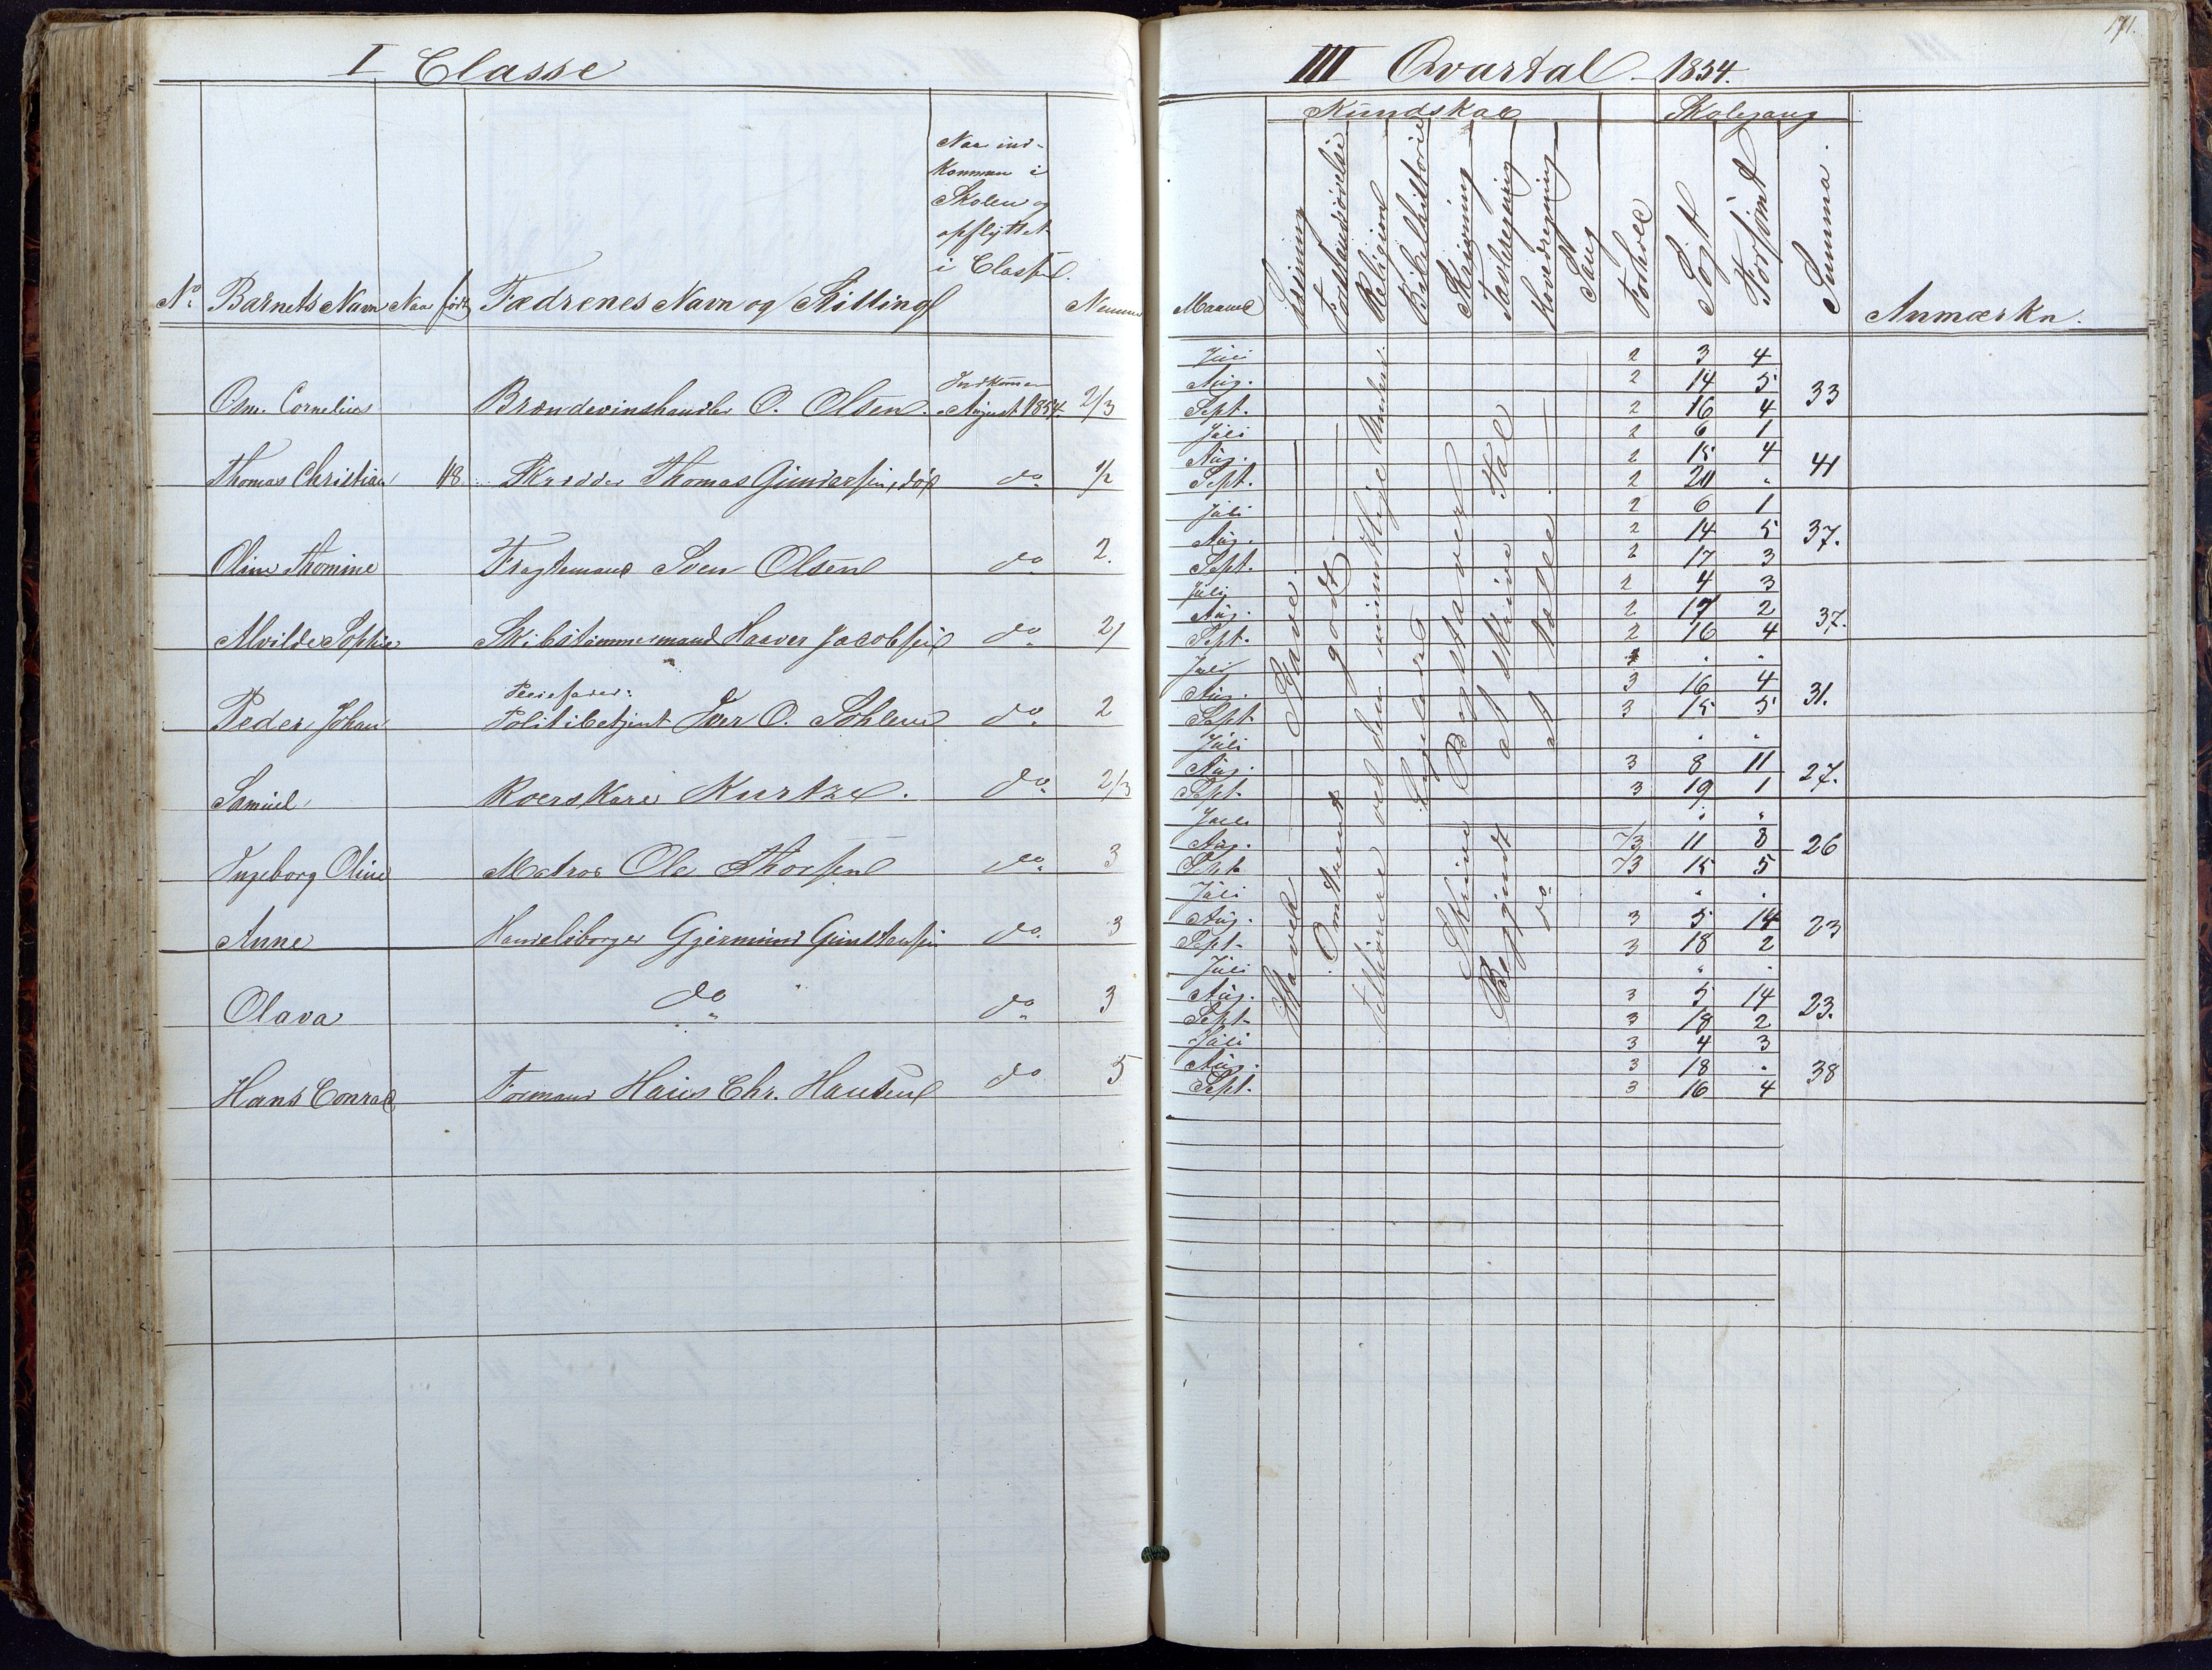 I Classe
III Qvartal 1854.
171.
Kundskab
Skolegang
No. Barnets Navn Naar født Fædrenes Navn og Stilling
Naar ind-
kommen i
Skolen og
opflyttet
i Classen.
Nemme
Maaned
Læsning
Forstandsøvelse
Religion
Bibelhistorie
Skrivning
Tavleregning
Hovedregning
Sang
Forhold
Søgt
Forsømt
Summa.
Anmærkn.
Osm. Cornelius Brændevinshandler O. Olsen. Indkommen August 1854 2/3
Juli 2 3 4
Aug. 2 14 5 33
Sept. 2 16 4
Thomas Christian 48. Skrædder Thomas Gundersen, død do 1/2
Juli 2 6 1
Aug. 2 15 4 41
Sept. 2 20 "
Oline Thomine Fragtemand Sven Olsen do 2.
Juli 2 6 1
Aug. 2 14 5 37.
Sept. 2 17 3
Alvilde Sophie Skibstømmermand Haaver Jacobsen do 2/
Juli 2 4 3
Aug. 2 17 2 37.
Sept. 2 16 4
Peder Johan Pleiefader: Politibetjent Iver O. Sohlem do 2
Juli " "
Aug. 3 16 4 31.
Sept. 3 15 5
Samuel Roerskarl Kurtze. do 2/3
Juli " "
Aug. 3 8 11 27.
Sept. 3 19 1
Ingeborg Oline Matros Ole Thorsen do 3
Juli " "
Aug. 2/3 11 8 26
Sept. 2/3 15 5
Anne Handelsborger Gjermund Gunstensen do 3
Juli " "
Aug. 3 5 14 23
Sept. 3 18 2
Olava do do 3
Juli " "
Aug. 3 5 14 23.
Sept. 3 18 2
Hans Conrad Formand Hans Chr. Hansen do 5
Juli 3 4 3
Aug. 3 18 " 38
Sept. 3 16 4
Stave.
Omtrent godt.
ved den mundtlige Underv.
Bogstaver
Skrive
at skrive Tal
Begyndt
do at tælle.